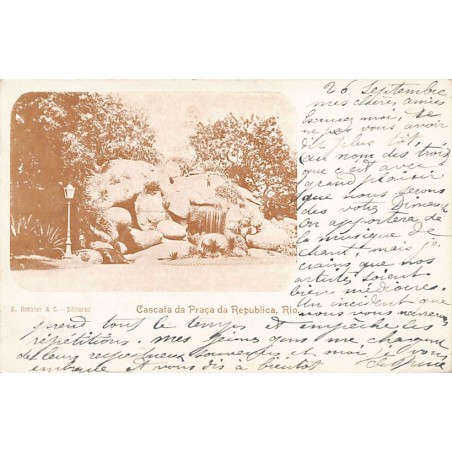 26 Septembre
mes chères amies
excusez moi, de
ne pas vous avoir
dit plus tôt,
au nom des trois
que c'est avec
grand plaisir
que nous ferons
des votres Dimanche
On apportera de
la musique de
chant, mais j'ai
crains que nos
artistes soient
bien médiocres.
Un incident que
nous vous
E. Bröhler & C. — Editores
Cascata da Praça da Republica, Rio.
prend tout le temps et empêche les
répétitions. mes me chargent
de leurs respectueux et moi je vous
embrasse et vous dis à bientôt